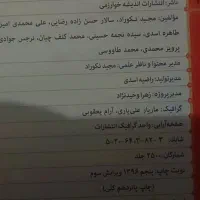 ناشر: انتشارات اندیشه خوارزمی
مؤلفین: مجید نکوراد، سالار حسن زاده رضایی، علی محمدی
طاهره اسدی، سیده نجمه حسینی، محمد گلف چیان، نرجس جوادی
پرویز محمدی، محمد طاووسی
مدیر محتوا و ناظر علمی: مجید نکوراد
مدیر تولید: راضیه اسدی
مدیر پروژه: زهرا وحیدنژاد
گرافیک: مازیار علی‌یاری، آرام یعقوبی
صفحه‌آرایی: واحد گرافیک انتشارات
شابک:
شمارگان: ۲۵۰۰ جلد
نوبت چاپ: پنجم ۱۳۹۶ ویرایش سوم
(چاپ پانزدهم کلی)